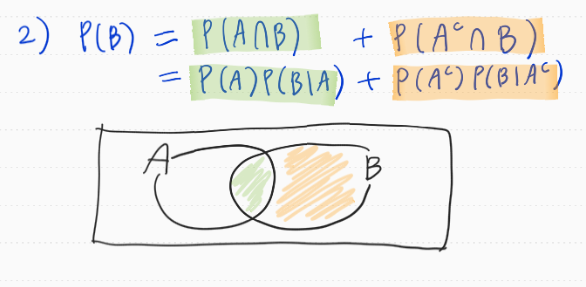 2) P(B) = P(A∩B) + P(Aᶜ∩B)
= P(A)P(B|A) + P(Aᶜ)P(B|Aᶜ)
A B